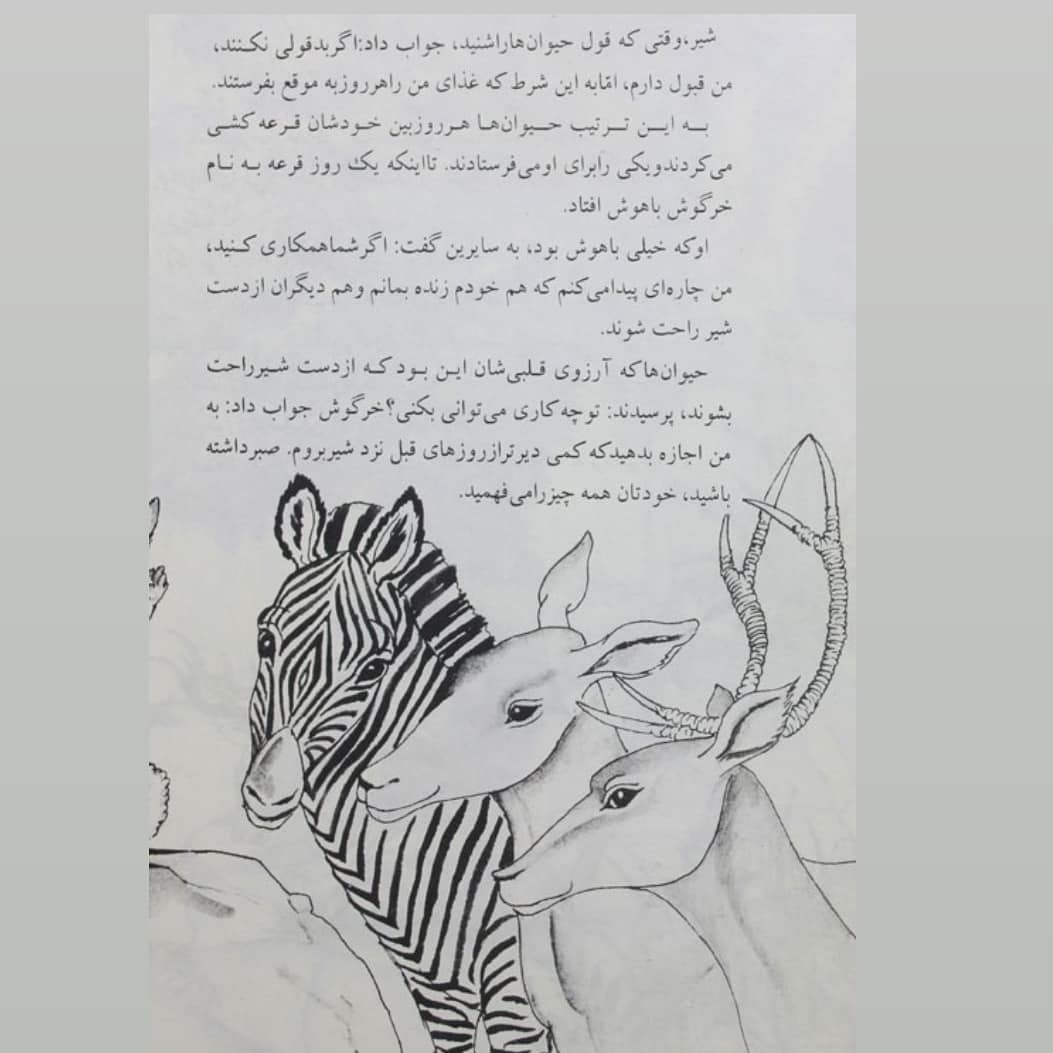 شیر،وقتی که قول حیوان‌هاراشنید، جواب داد:اگربدقولی نکنند،
من قبول دارم، امّابه این شرط که غذای من راهرروزبه موقع بفرستند.
به این ترتیب حیوان‌ها هرروزبین خودشان قرعه کشی
می‌کردندویکی رابرای اومی‌فرستادند. تااینکه یک روز قرعه به نام
خرگوش باهوش افتاد.
اوکه خیلی باهوش بود، به سایرین گفت: اگرشماهمکاری کنید،
من چاره‌ای پیدامی‌کنم که هم خودم زنده بمانم وهم دیگران ازدست
شیر راحت شوند.
حیوان‌هاکه آرزوی قلبی‌شان این بود که ازدست شیرراحت
بشوند، پرسیدند: توچه‌کاری می‌توانی بکنی؟خرگوش جواب داد: به
من اجازه بدهیدکه کمی دیرترازروزهای قبل نزد شیربروم. صبرداشته
باشید، خودتان همه چیزرامی‌فهمید.